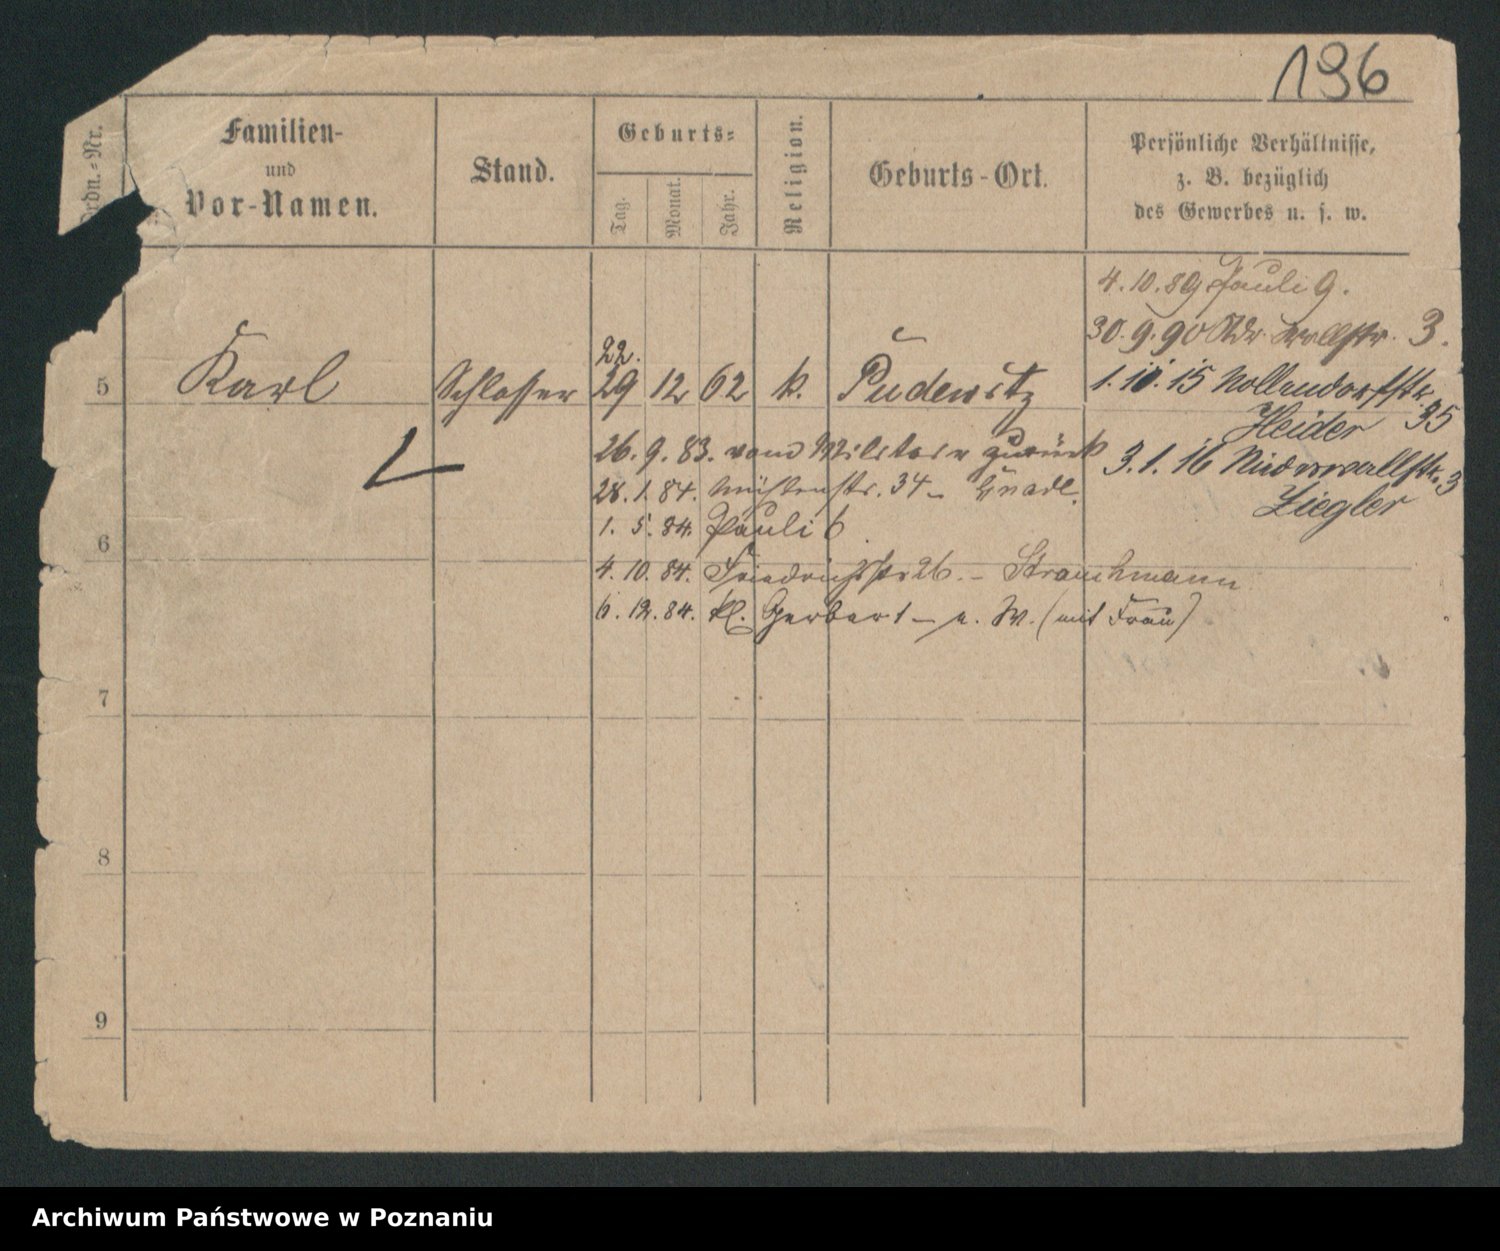 196
Ordn.-Nr.
Familien-
und
Vor-Namen.
Stand.
Geburts-
Tag.
Monat.
Jahr.
Religion.
Geburts-Ort.
Persönliche Verhältnisse,
z. B. bezüglich
des Gewerbes u. s. w.
4.10.89 Pauli 9.
30.9.90 wallstr. 3.
22.
5 Karl Schlosser 29 12 62 k. Pudewitz
1.10.15 Nollendorfstr. 35
Heider
26.9.83. vom Militair zurück
3.1.16 Niederwallstr. 3
Ziegler
28.1.84. 34 -
1.5.84. Pauli 6
6
4.10.84. Friedrichstr 26. - Strauchmann
6.12.84. kl. Gerber 1 - a. W. (mit Frau)
7
8
9
Archiwum Państwowe w Poznaniu